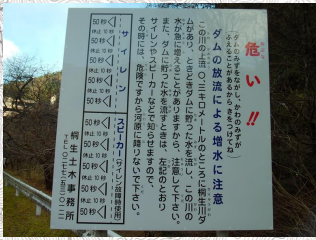 危い!!
(ダムのみずをながし、かわのみずが
ふえることがあるから、きをつけてね)
ダムの放流による増水に注意
この川の上流〇.三キロメートルのところに桐生川ダ
ムがあり、ときどきダムに貯った水を流し、この川の
水が急に増えることがありますから、注意して下さい。
また、ダムに貯った水を流すときは、左記のとおり
サイレンやスピーカーなどで知らせますので、
その時には、危険ですから河原に降りないで下さい。
サイレン
50秒
休止10秒
50秒
休止10秒
50秒
休止10秒
50秒
休止10秒
50秒
スピーカー(サイレン故障時使用)
50秒
休止10秒
50秒
休止10秒
50秒
休止10秒
50秒
休止10秒
50秒
桐生土木事務所